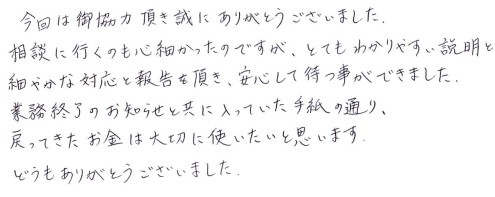 今回は御協力頂き誠にありがとうございました.
相談に行くのも心細かったのですが、とてもわかりやすい説明と
細やかな対応と報告を頂き、安心して待つ事ができました.
業務終了のお知らせと共に入っていた手紙の通り、
戻ってきたお金は大切に使いたいと思います.
どうもありがとうございました.